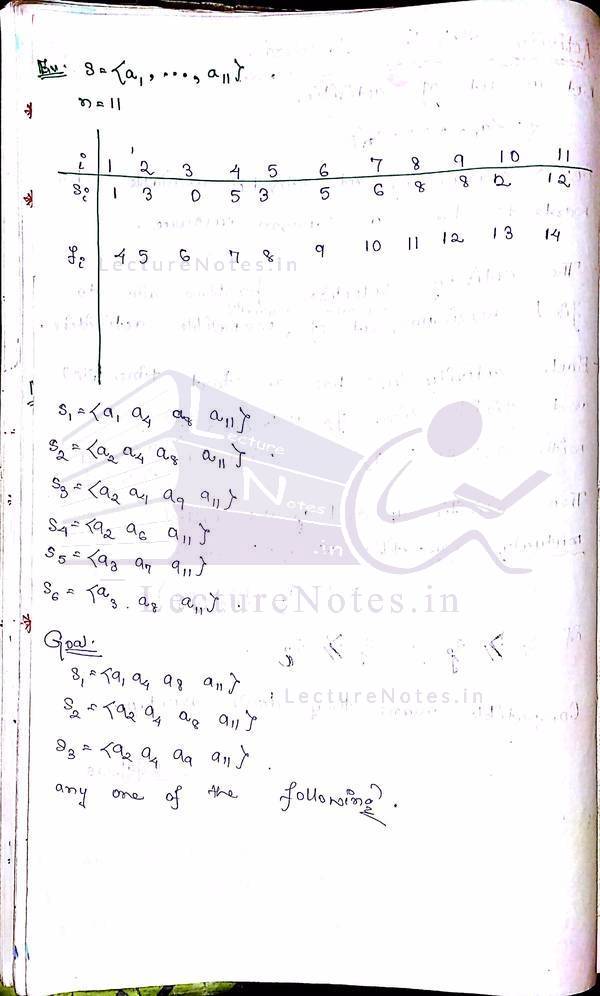 Ex: S = {a1, ..., a11}.
n = 11
i 1 2 3 4 5 6 7 8 9 10 11
Si 1 3 0 5 3 5 6 8 8 12 12
fi 4 5 6 7 8 9 10 11 12 13 14
LectureNotes.in
S1 = {a1 a4 a8 a11}
S2 = {a2 a4 a8 a11}.
S3 = {a2 a4 a9 a11}
S4 = {a2 a6 a11}
S5 = {a3 a7 a11}
S6 = {a3. a8 a11}.
Lecture
Notes
.in
LectureNotes.in
Goal:
S1 = {a1 a4 a8 a11}
LectureNotes.in
S2 = {a2 a4 a8 a11}
S3 = {a2 a4 a9 a11}.
any one of the following.